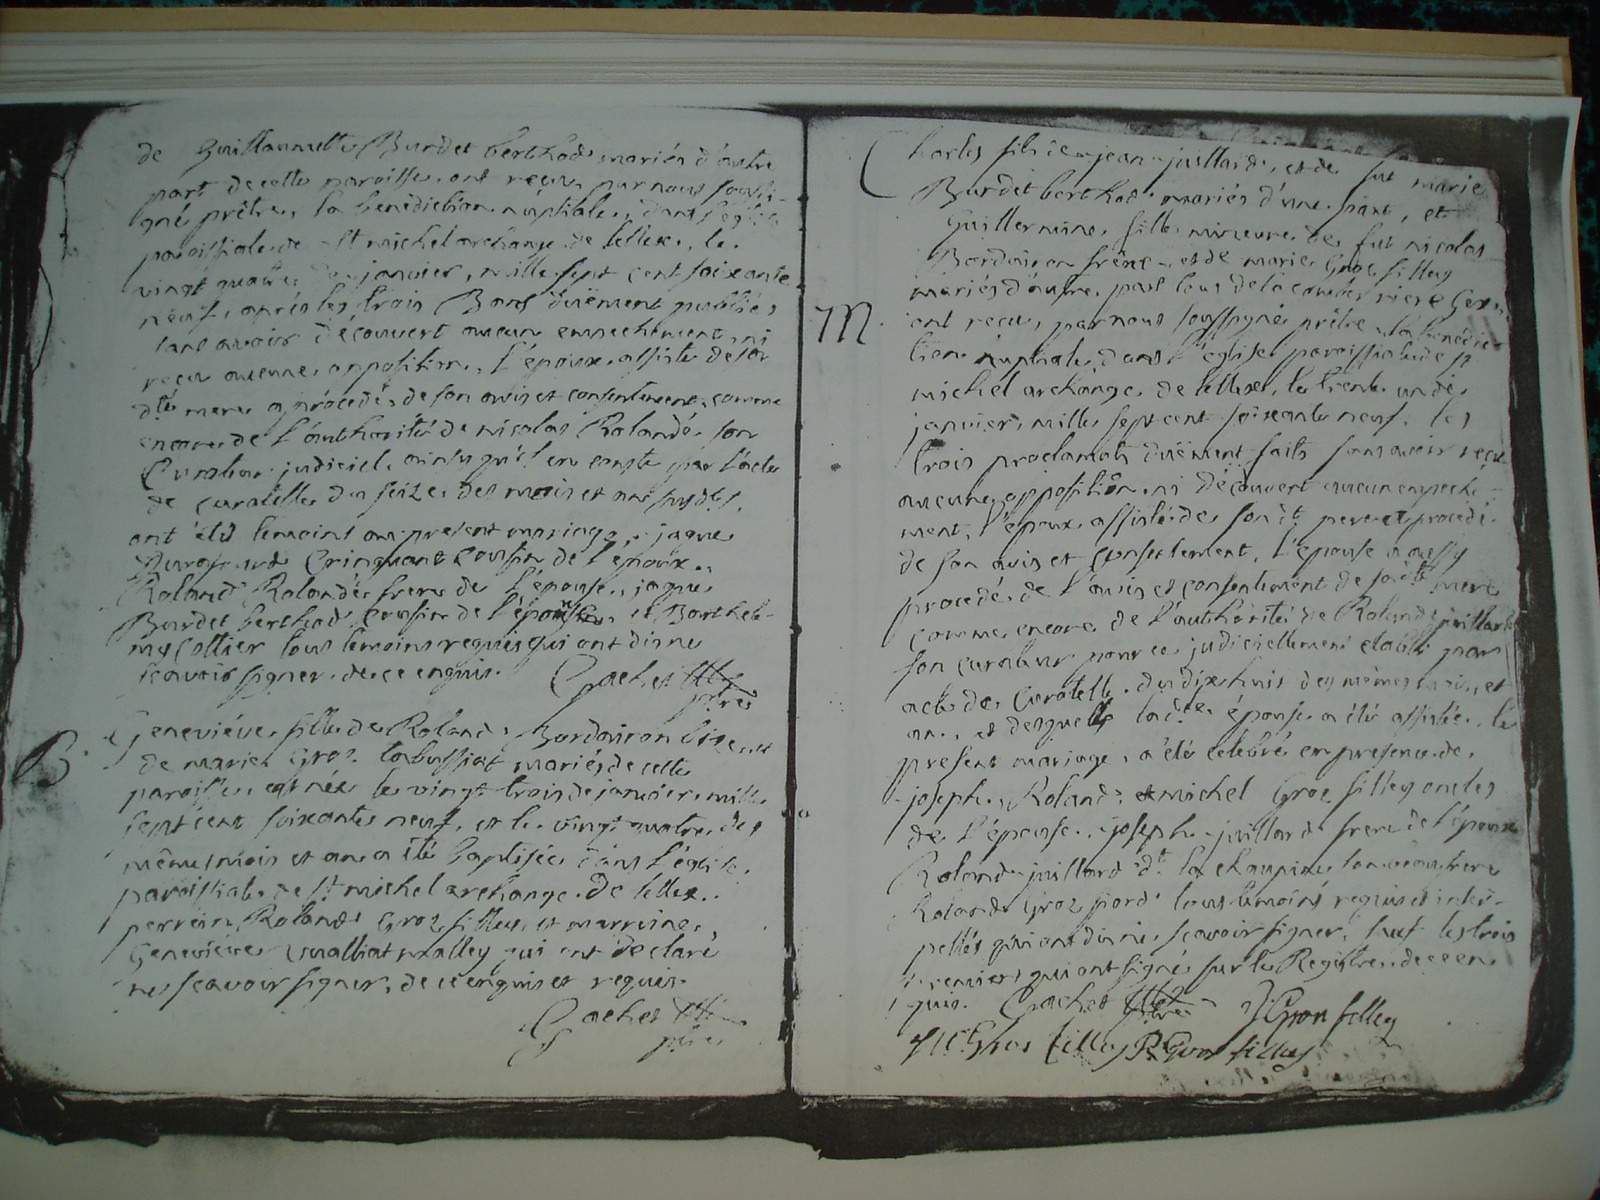 de Guillaumette Burdet berthod mariés d'autre
part de cette paroisse, ont reçu par nous soussi-
gné prêtre, la benediction nuptiale, dans l'eglise
paroissiale de St michel archange de lellex, le
vingt quatre de janvier, mille sept cent soixante
neuf, après les trois Bans duëment publiés
sans avoir découvert aucun empechement, ni
reçu aucune opposition, l'époux assisté de sa
dte mere a procédé de son avis et consentement, comme
encore de l'authorité de nicolas Rolandé son
Curateur judiciel, ainsy qu'il en conste par l'acte
de curatelle du seize des mois et an susdts,
ont été temoins au present mariage, jaque
cousin de l'époux,
Roland Rolandé frere de l'épouse, jaque
Burdet berthod cousin de l'épouse, et Barthele-
my Cottier tous temoins requis qui ont dit ne
scavoir signer de ce enquis. Gachet
ptre
B. Geneviéve fille de Roland Bordairon et
de marie Groz tabussiat mariés de cette
paroisse, est née le vingt trois de janvier mille
sept cent soixante neuf, et le vingt quatre des
même mois et an a été baptisée dans l'église
paroissiale de St michel archange de lellex.
perrein Roland Groz filley, et marreine,
Genevieve qui ont declaré
ne scavoir signer, de ce enquis et requis.
Gachet
ptre
Charles fils de jean juillard, et de fut marie
Burdet berthod mariés d'une part, et
Guillermine fille mineure de fut nicolas
Bordairon frêne, et de marie Groz filley
mariés d'autre part tous de la combe riere Gex,
M. ont reçu, par nous soussigné prêtre la benedic-
tion nuptiale dans l'église paroissiale de St
michel archange de lellex, le trente un de
janvier, mille sept cent soixante neuf, les
trois proclamats duëment faits sans avoir reçu
aucune opposition, ni découvert aucun empeche-
ment, l'époux assisté de son dt pere et procedé
de son avis et consentement, l'épouse a aussy
procedé de l'avis et consentiment de sa dte mere
comme encore de l'authorité de Roland juillard
son curateur pour ce judiciellement etabli par
acte de Curatelle du dixhuit des mêmes mois, et
an, et desquels la dte épouse a été assistée, le
present mariage, a été celebré en presence de
joseph, Roland, et michel Groz filley oncles
de l'épouse, joseph juillard frere de l'époux
Roland juillard dt la son
Roland Groz piord tous temoins requis et inter-
pellés qui ont dit ne scavoir signer, sauf les trois
premiers qui ont signé sur le Registre de ce en
quis. Gachet ptre J Gros filley
M Gros filley R Gros filley